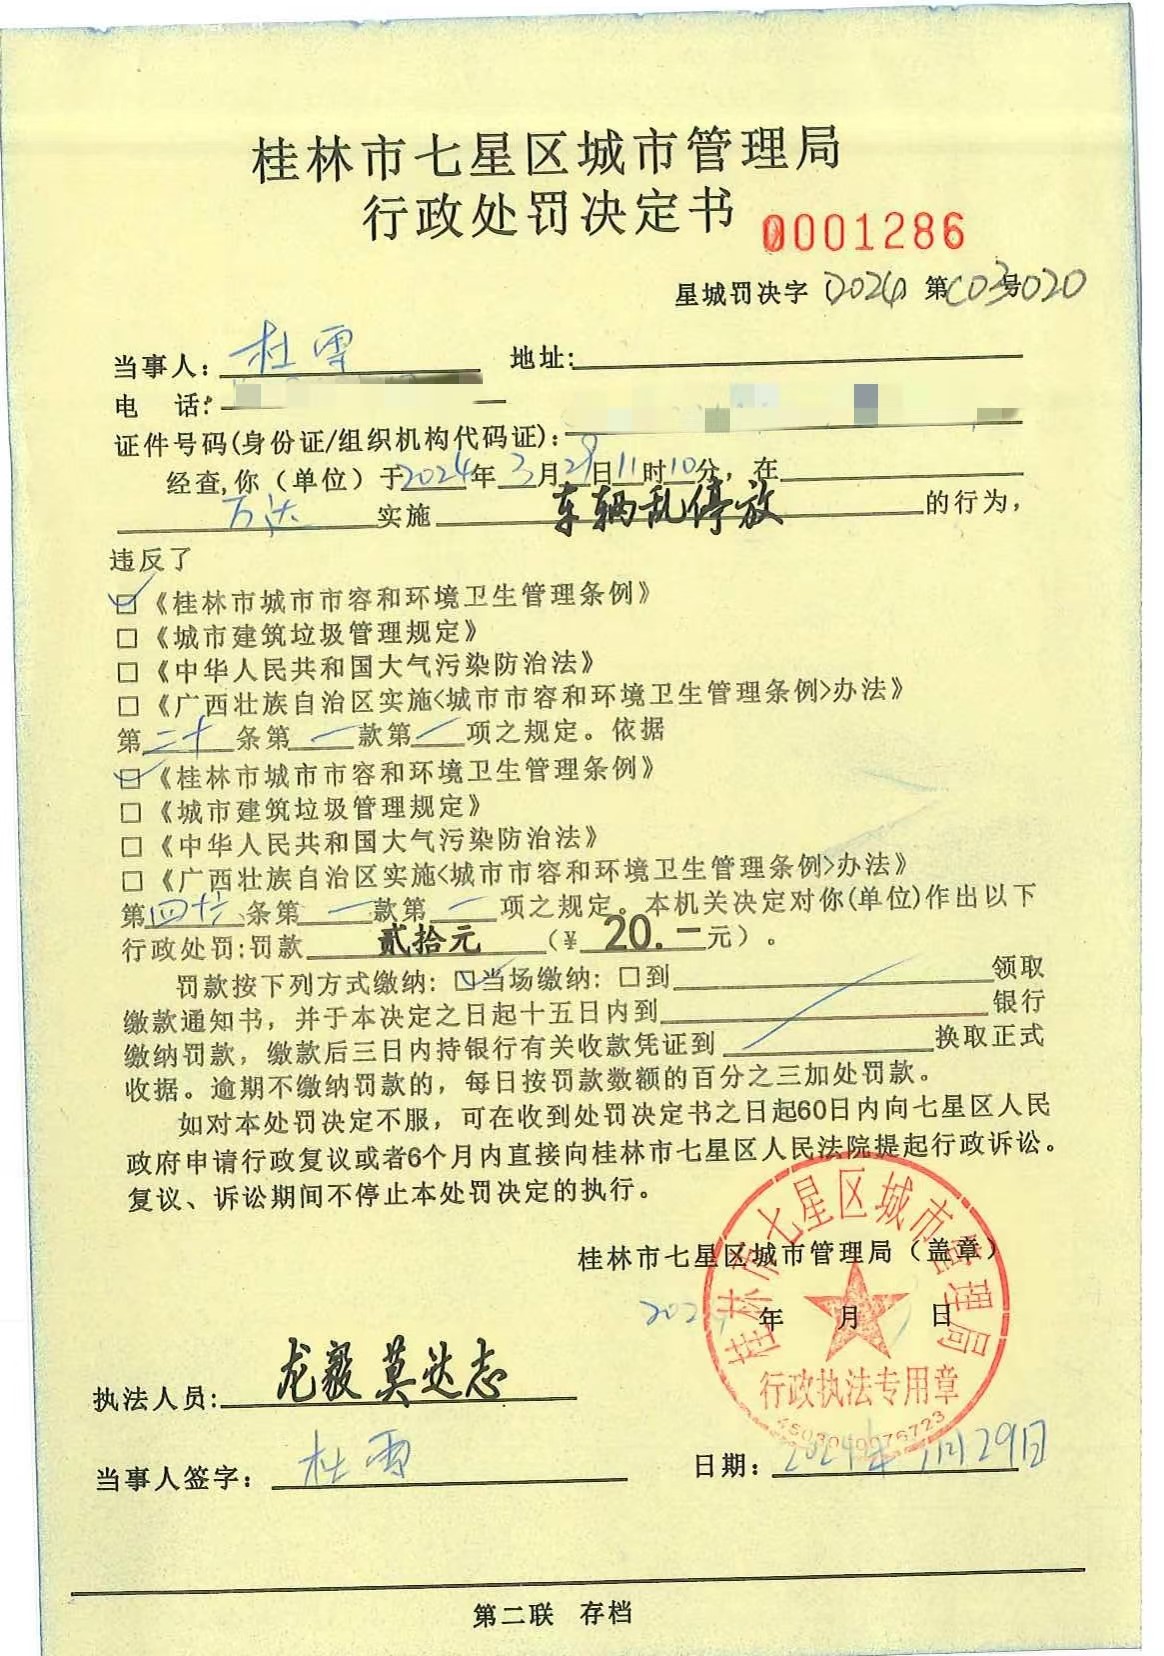 桂林市七星区城市管理局
行政处罚决定书 0001286
星城罚决字(2024)第C03号020
当事人:杜雪 地址:
电 话:
证件号码(身份证/组织机构代码证):
经查,你(单位)于2024年3月29日11时10分,在
万达实施车辆乱停放的行为,
违反了
☑《桂林市城市市容和环境卫生管理条例》
□《城市建筑垃圾管理规定》
□《中华人民共和国大气污染防治法》
□《广西壮族自治区实施<城市市容和环境卫生管理条例>办法》
第二十条第一款第一项之规定。依据
☑《桂林市城市市容和环境卫生管理条例》
□《城市建筑垃圾管理规定》
□《中华人民共和国大气污染防治法》
□《广西壮族自治区实施<城市市容和环境卫生管理条例>办法》
第四十六条第一款第一项之规定。本机关决定对你(单位)作出以下
行政处罚:罚款贰拾元(¥20.一元)。
罚款按下列方式缴纳:☑当场缴纳:□到领取
缴款通知书,并于本决定之日起十五日内到银行
缴纳罚款,缴款后三日内持银行有关收款凭证到换取正式
收据。逾期不缴纳罚款的,每日按罚款数额的百分之三加处罚款。
如对本处罚决定不服,可在收到处罚决定书之日起60日内向七星区人民
政府申请行政复议或者6个月内直接向桂林市七星区人民法院提起行政诉讼。
复议、诉讼期间不停止本处罚决定的执行。
桂林市七星区城市管理局(盖章)
2024年 月 日
桂林市七星区城市管理局
行政执法专用章
执法人员:龙毅 莫达志
当事人签字:杜雪 日期:2024年 月29日
第二联 存档